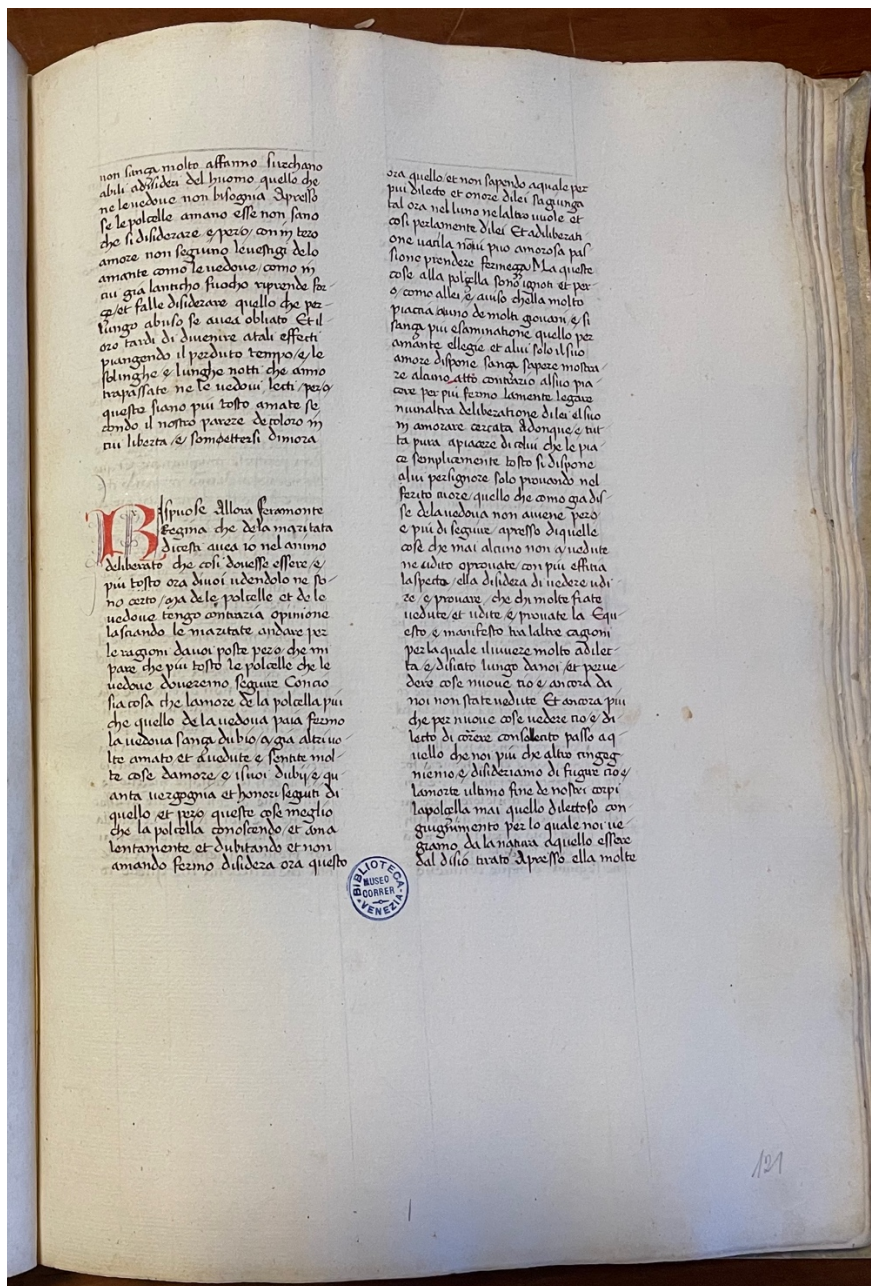 non sança molto affanno si rechano
abili adisideri del huomo quello che
ne le vedove non bisognia Apresso
se le polcelle amano esse non sano
che si disiderare e pero con intero
amore non seguino levestigi delo
amante como le vedove como in
cui gia lanticho fuocho riprende for-
ça et falle disiderare quello che per
lungo abuso se avea obliato Et il
oro tardi di divenire atali effecti
piangendo il perduto tempo e le
solinghe e lunghe notti che anno
trapassate ne le vedovi lecti per o
queste siano piu tosto amate se
condo il nostro parere de coloro in
cui liberta e somettersi dimora
Rispuose Allora Feramonte
Regina che de la maritata
dicesti avea io nel animo
deliberato che cosi dovesse essere e
piu tosto ora di voi udendolo ne so-
no certo ma dele polcelle et de le
vedove tengo contraria opinione
lasciando le maritate andare per
le ragioni da voi poste pero che mi
pare che piu tosto le polcelle che le
vedove doveremo seguire Concio
sia cosa che lamore de la polcella piu
che quello de la vedova paia fermo
la vedova sança dubio a gia altri vo-
lte amato et a vedute e sentite mol-
te cose damore e i suoi dubii e qu-
anta vergognia et honori seguiti di
quello et pero queste cose meglio
che la polcella conoscendo et ama
lentamente et dubitando et non
amando fermo disidera ora questo
ora quello et non sapendo a quale per
piu dilecto et onore di lei sagiunga
tal ora nel luno ne laltro vuole et
cosi per la mente di lei Et adiliberati
one vacila no vi puo amorosa pas
sione prendere fermeça Ma queste
cose alla polçella sono ignoti et per
o como allei e auiso chella molto
piaccia auno de molti giovani e si
sança piu esaminatione quello per
amante ellegie et a lui solo il suo
amore dispone sança sapere mostra-
re alcuno atto contrario al suo pia-
cere per piu fermo lamente legare
niunaltra deliberatione di lei el suo
in amorare cercata Adonque e tut
ta pura a piacere di colui che le pia-
ce semplicemente tosto si dispone
a lui per signore solo provando nel
ferito cuore quello che como gia dis-
se de la vedova non aviene pero
e piu di seguire apresso di quelle
cose che mai alcuno non a vedute
ne udito o provate con piu efficia
laspecta ella disidera di vedere udi-
re e provare che chi molte fiate
vedute et udite e provate la Equ-
esto e manifesto tra laltre cagioni
per la quale il vivere molto a dilec-
ta e disiato lungo da noi et per ve-
dere cose nuove cio e ancora da
noi non state vedute Et ancora piu
che per nuove cose vedere cio e di-
lecto di correre con sollecito passo a q-
uello che noi piu che altro cingeg-
niemo e disideriamo di fugire cio e
la morte ultimo fine de nostri corpi
la polcella mai quello dilettoso con-
giugnimento per lo quale noi ve-
gnamo da la natura a quello essere
dal disio tirato Apresso ella molte
BIBLIOTECA
MUSEO
CORRER
VENEZIA
121